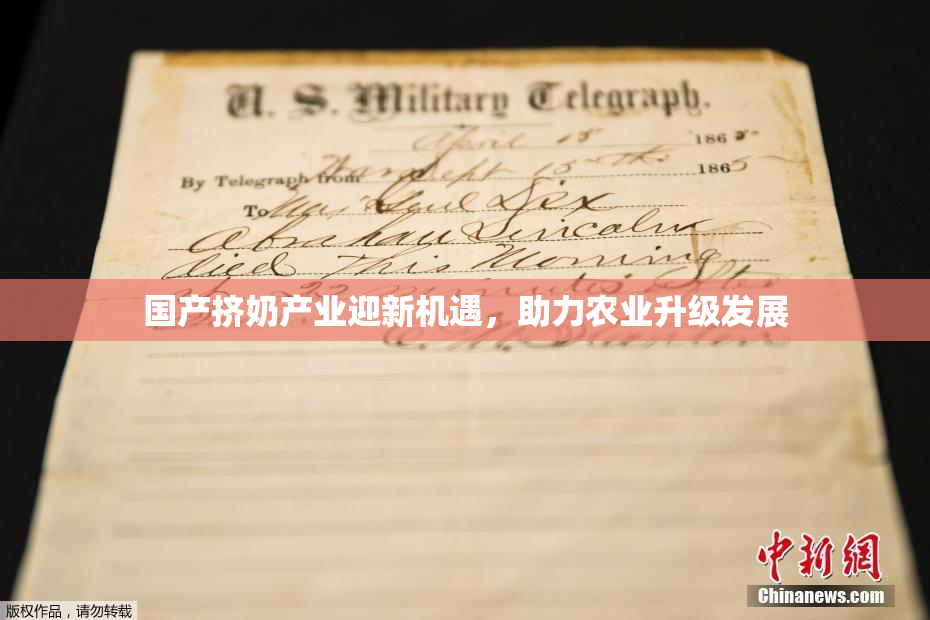 U. S. Military Telegraph.
April 15 1865
By Telegraph from War Dept 15th 1865
To Maj Genl Dix
Abraham Lincoln
died This Morning
at 22 minutes after
国产挤奶产业迎新机遇，助力农业升级发展
中新网
Chinanews.com
版权作品，请勿转载